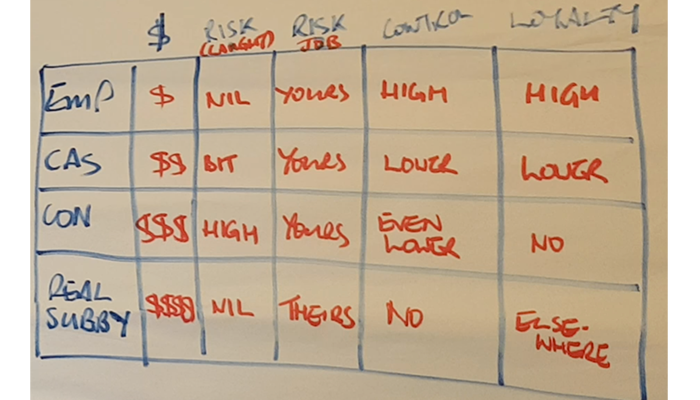 $ RISK (CAUGHT) RISK JOB CONTROL LOYALTY
EMP $ NIL YOURS HIGH HIGH
CAS $$ BIT YOURS LOWER LOWER
CON $$$ HIGH YOURS EVEN LOWER NO
REAL SUBBY $$$$ NIL THEIRS NO ELSE-WHERE